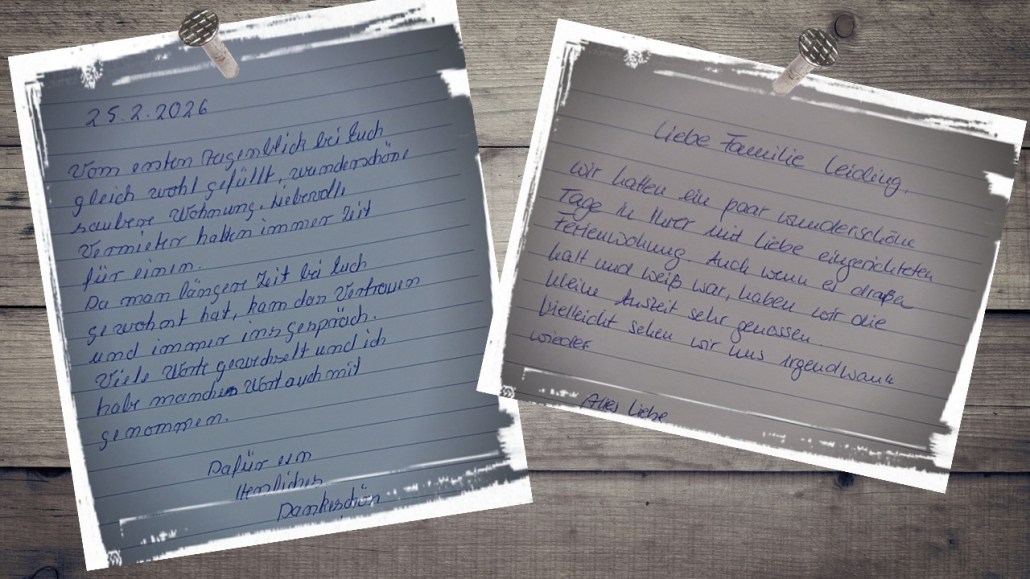 25.2.2026
Vom ersten Augenblick bei Euch
gleich wohl gefüllt, wunderschöne
saubere Wohnung. Liebevolle
Vermieter hatten immer Zeit
für einen.
Da man längere Zeit bei Euch
gewohnt hat, kam das Vertrauen
und immer ins gespräch.
Viele Worte gewechselt und ich
habe manches Wort auch mit
genommen.
Dafür ein
Herzliches
Dankeschön
Liebe Familie Leiding,
wir hatten ein paar wunderschöne
Tage in Ihrer mit Liebe eingerichteten
Ferienwohnung. Auch wenn es draußen
kalt und weiß war, haben wir die
kleine Auszeit sehr genossen.
Vielleicht sehen wir uns irgendwann
wieder
Alles Liebe